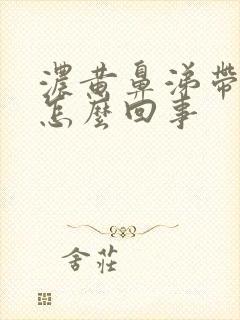 濃黄鼻涕帶
怎麼回事
舍莊